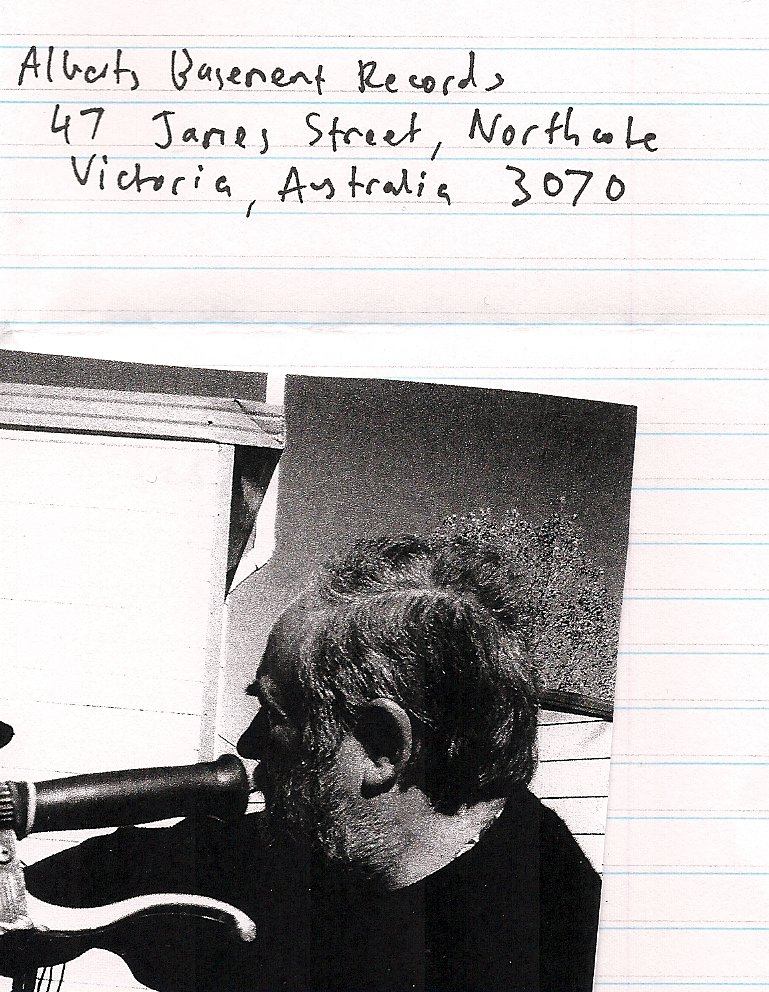 Alberts Basement Records
47 James Street, Northcote
Victoria, Australia 3070